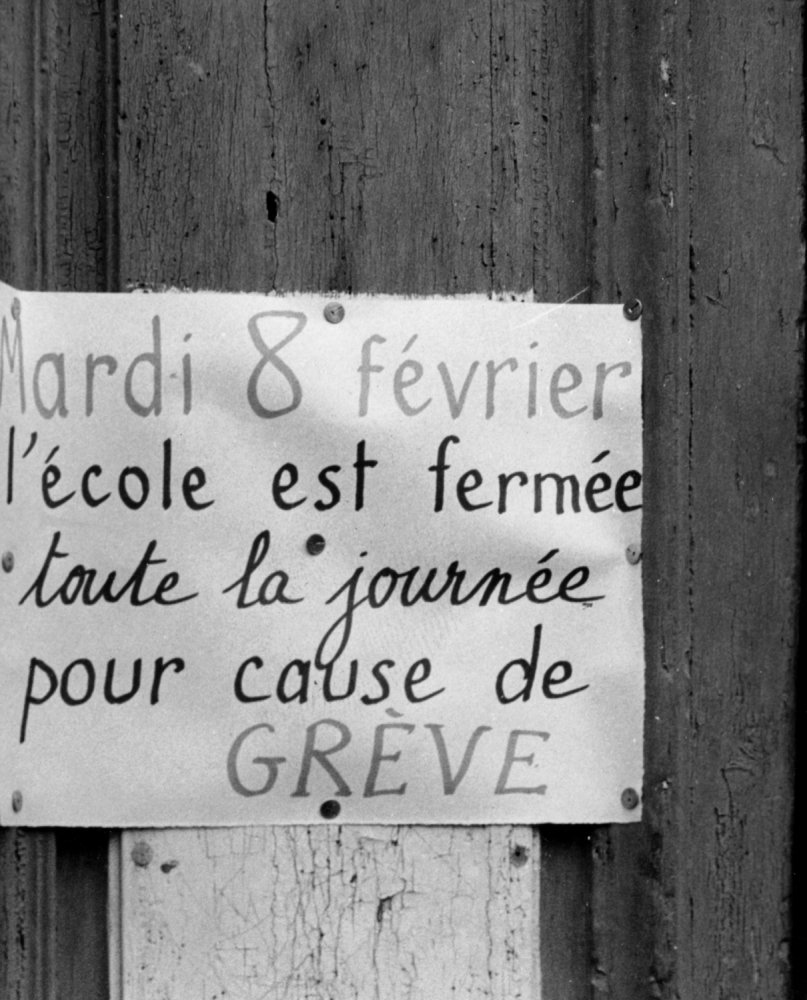 Mardi 8 février
l'école est fermée
toute la journée
pour cause de
GRÈVE